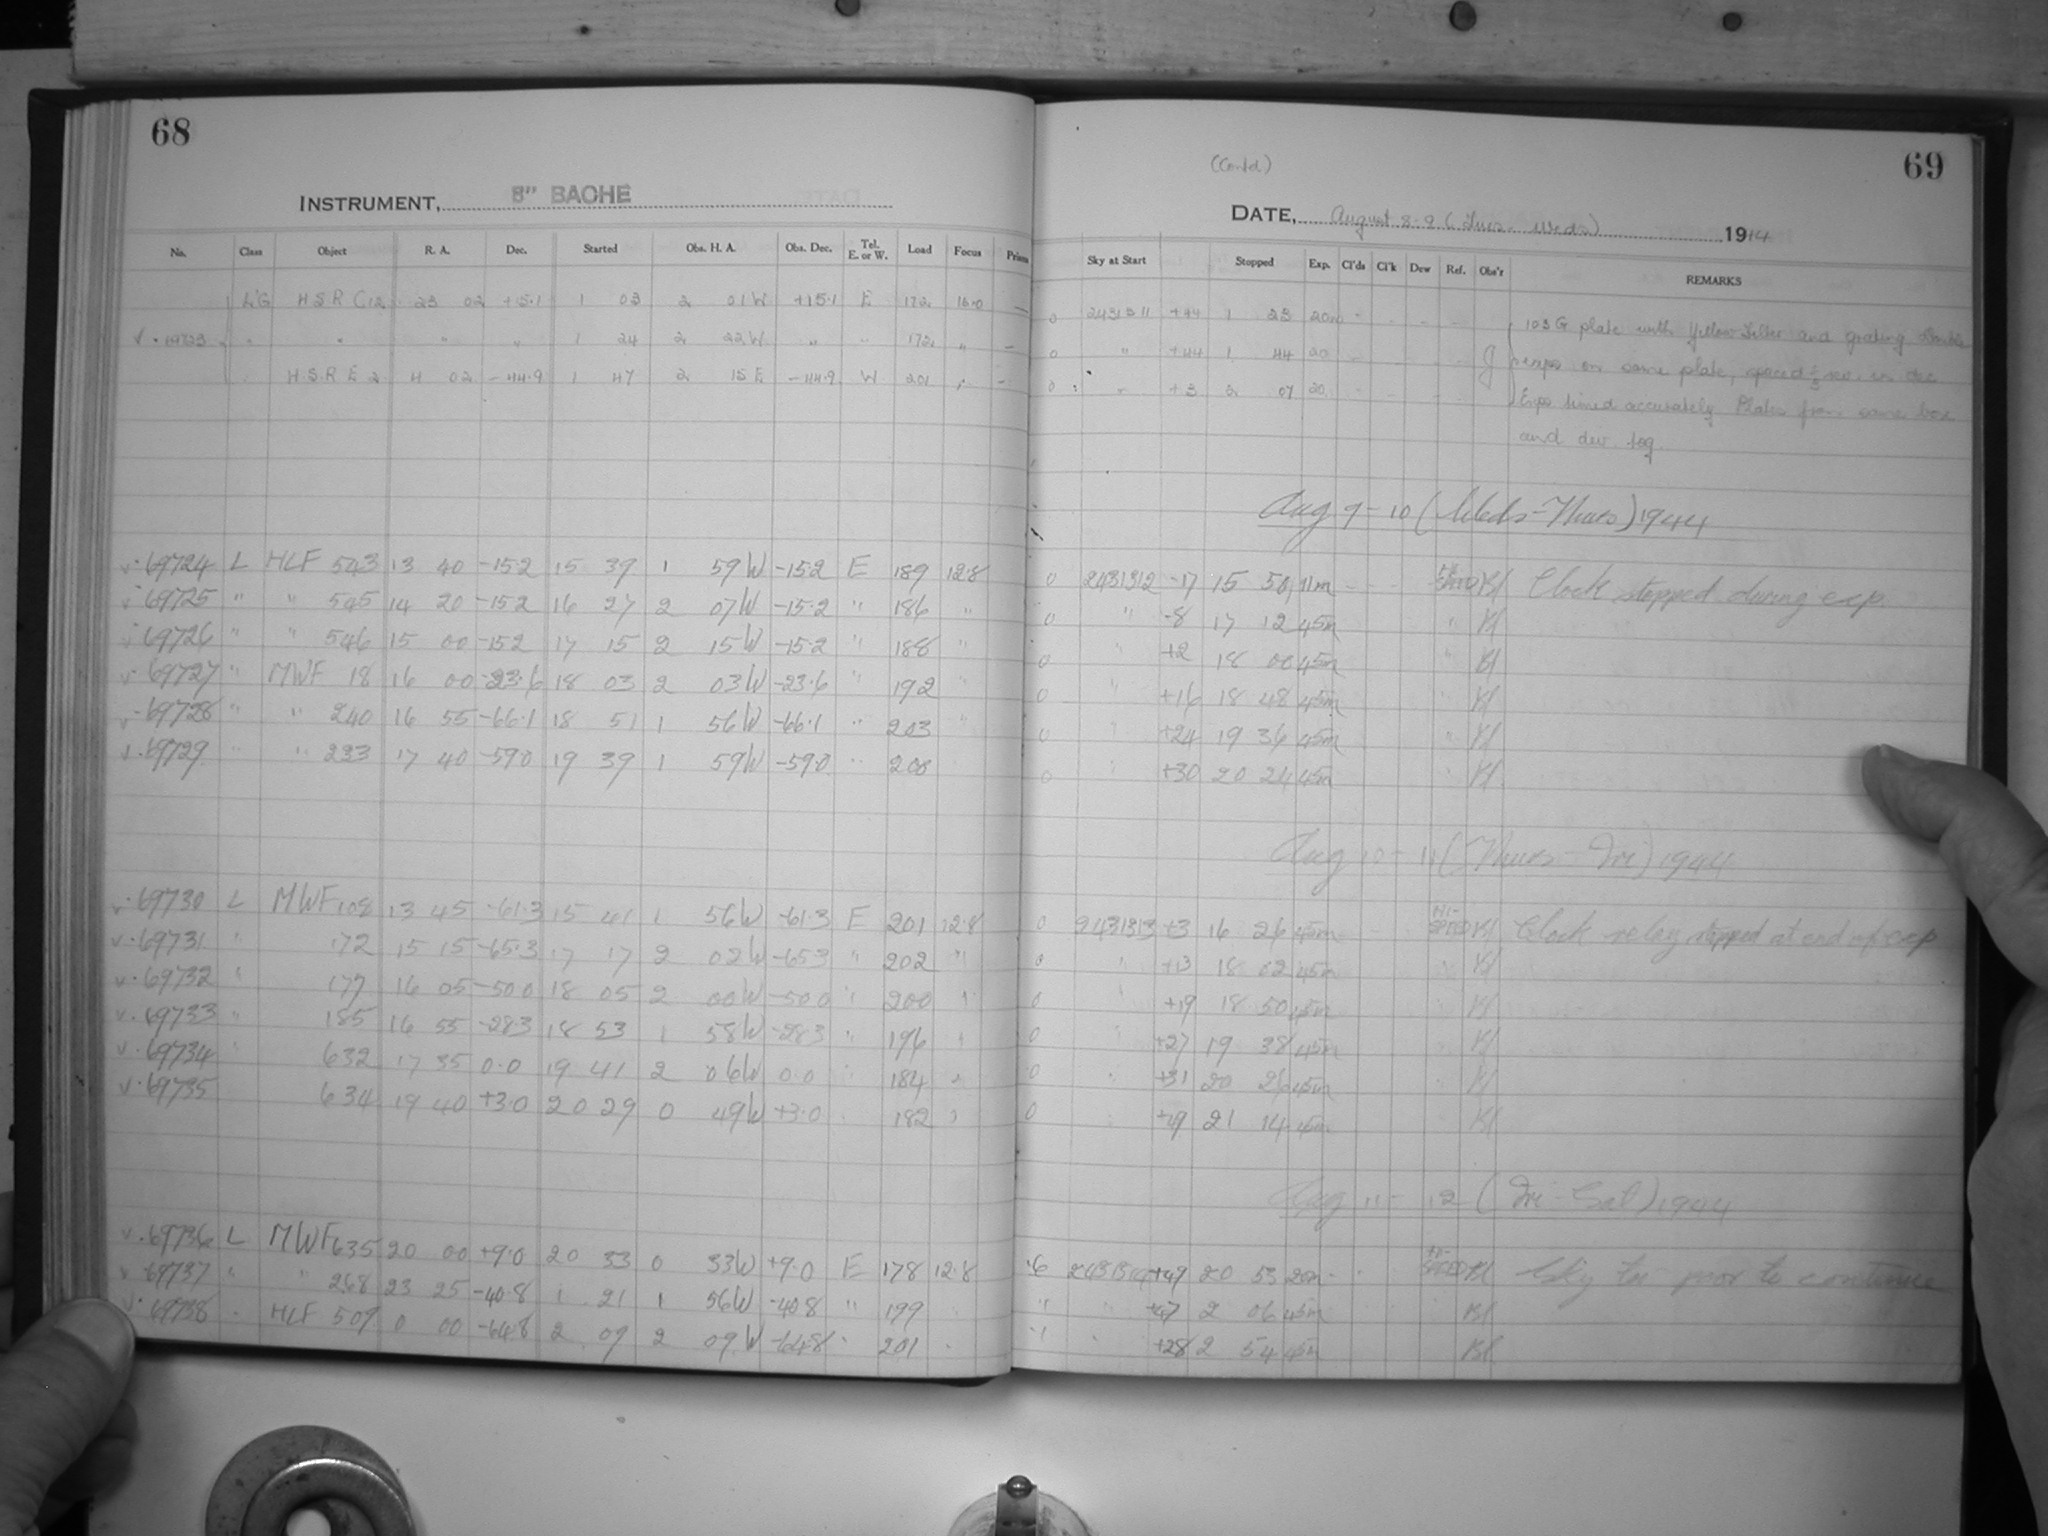 68
INSTRUMENT, 8" BACHE
No. Class Object R. A. Dec. Started Obs. H. A. Obs. Dec. Tel. E. or W. Load Focus Prism
LG HSR C12 23 02 +15.1 1 03 2 01W +15.1 E 172 16.0 —
v . 69723 " " " " 1 24 2 22W " " 172 " —
HSR E 2 4 02 -44.9 1 47 2 15E -44.9 W 201 " -
v. 69724 L HLF 543 13 40 -15.2 15 39 1 59W -15.2 E 189 12.8
v. 69725 " " 545 14 20 -15.2 16 27 2 07W -15.2 " 186 "
v. 69726 " " 546 15 00 -15.2 17 15 2 15W -15.2 " 188 "
v. 69727 " MWF 18 16 00 -23.6 18 03 2 03W -23.6 " 192 "
v. 69728 " " 240 16 55 -66.1 18 51 1 56W -66.1 " 203 "
v. 69729 " " 233 17 40 -59.0 19 39 1 59W -59.0 " 208
v. 69730 L MWF 108 13 45 -61.3 15 41 1 56W -61.3 E 201 12.8
v. 69731 " 172 15 15 -65.3 17 17 2 02W -65.3 " 202 "
v. 69732 " 177 16 05 -50.0 18 05 2 00W -50.0 " 200 "
v. 69733 " 185 16 55 -28.3 18 53 1 58W -28.3 " 196 "
v. 69734 632 17 35 0.0 19 41 2 06W 0.0 " 184 "
v. 69735 634 19 40 +3.0 20 29 0 49W +3.0 182 "
v. 69736 L MWF 635 20 00 +9.0 20 33 0 33W +9.0 E 178 12.8
v 69737 " " 268 23 25 -40.8 1 21 1 56W -40.8 " 199
v. 69738 HLF 509 0 00 -64.8 2 09 2 09W -64.8 " 201
69
(Contd)
DATE, August 8-9 (Tues-Weds) 1944
Sky at Start Stopped Exp. Cl'ds Cl'k Dew Ref. Obs'r REMARKS
0 2431311 +44 1 23 20m 103G plate with Yellow Filter and grating Double
0 " +44 1 44 20 J exps on same plate, spaced in dec
0 " +3 2 07 20 Exps timed accurately Plates from same box
and dev tog.
Aug 9-10 (Weds-Thurs) 1944
0 2431312 -17 15 50 11m HI-SPEED Bl Clock stopped during exp.
0 " -8 17 12 45m " Bl
0 " +2 18 00 45m " Bl
0 " +16 18 48 45m " Bl
0 " +24 19 36 45m " Bl
0 " +30 20 24 45m " Bl
Aug 10-11 (Thurs-Fri) 1944
0 2431313 +3 16 26 45m HI-SPEED Bl Clock relay stopped at end of exp
0 " +13 18 02 45m " Bl
0 " +19 18 50 45m " Bl
0 +27 19 38 45m Bl
0 " +31 20 26 45m " Bl
0 " +49 21 14 45m Bl
Aug 11-12 (Fri-Sat) 1944
.6 2431314 +49 20 53 20m HI-SPEED Bl Sky too poor to continue
" " +47 2 06 45m Bl
.1 " +28 2 54 45m Bl